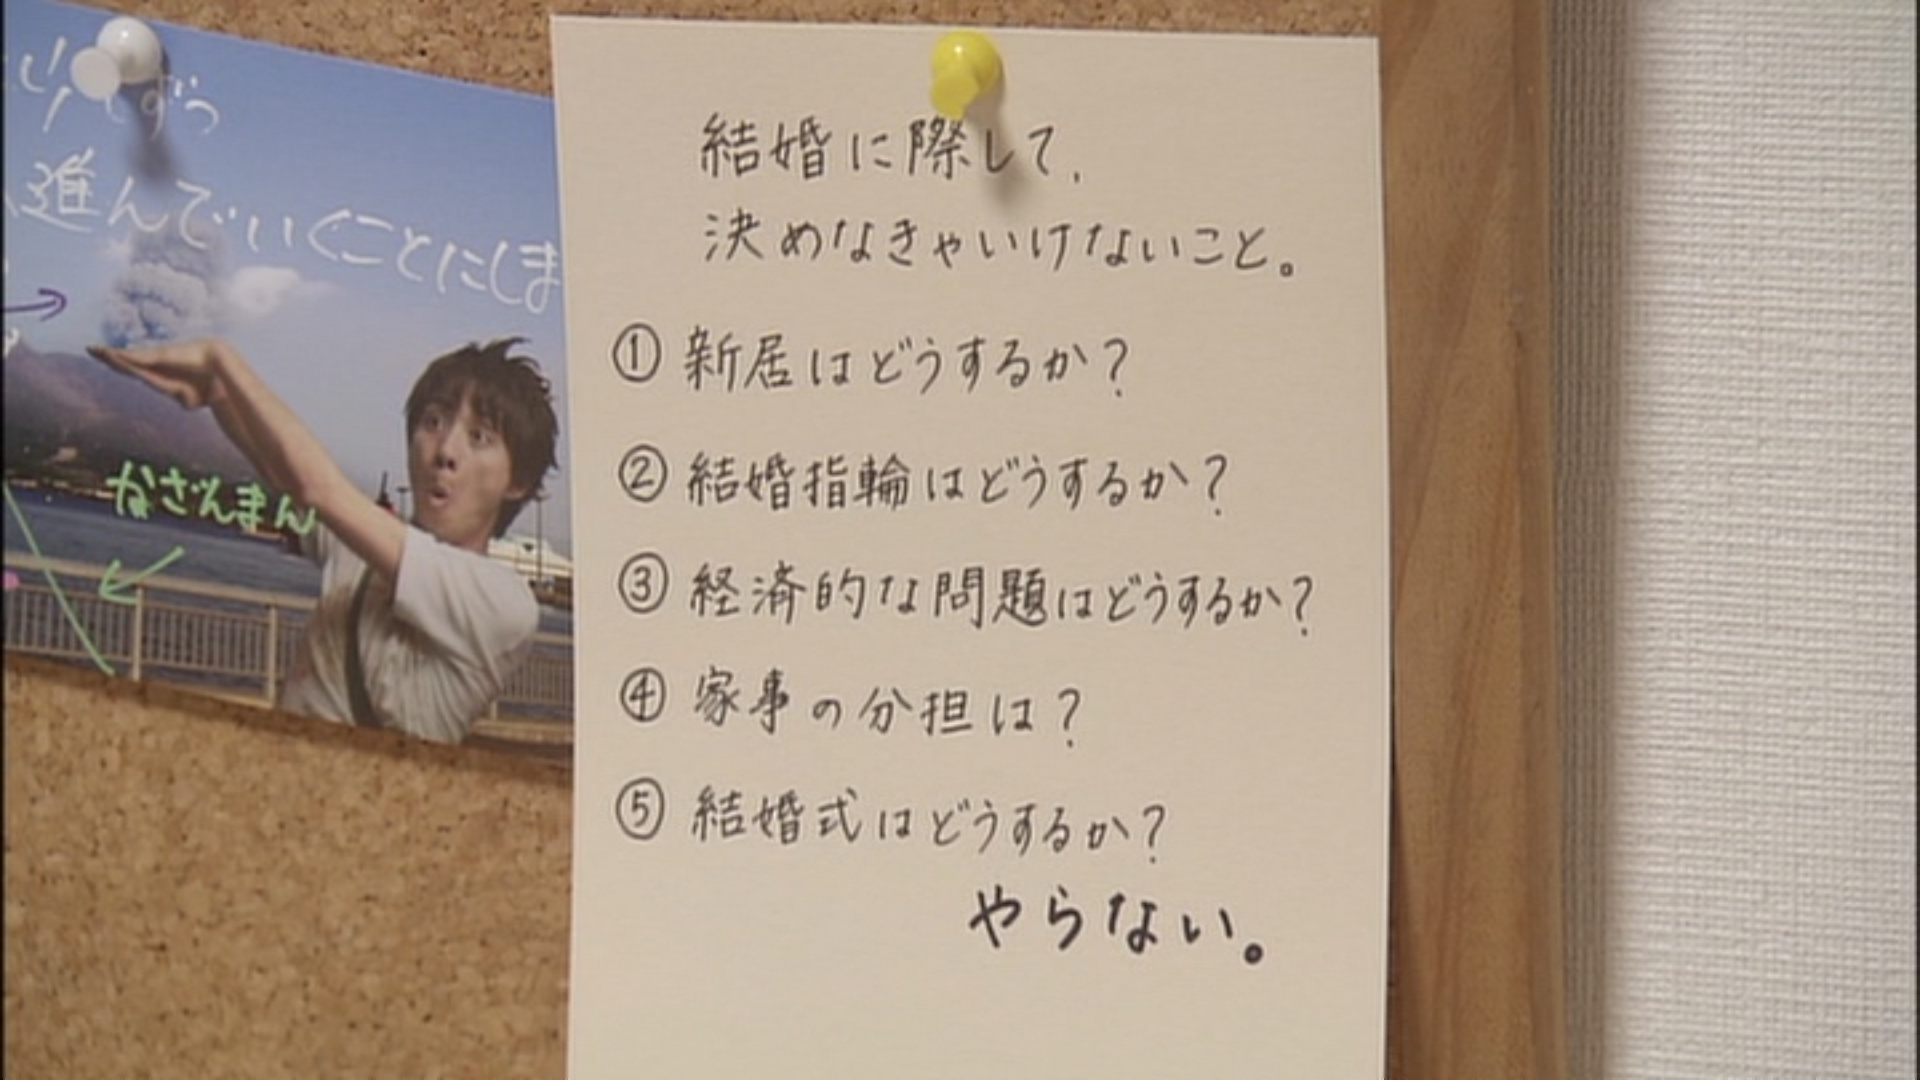 進んでいくことにしま
かざんまん
結婚に際して、
決めなきゃいけないこと。
① 新居はどうするか?
② 結婚指輪はどうするか?
③ 経済的な問題はどうするか?
④ 家事の分担は?
⑤ 結婚式はどうするか?
やらない。